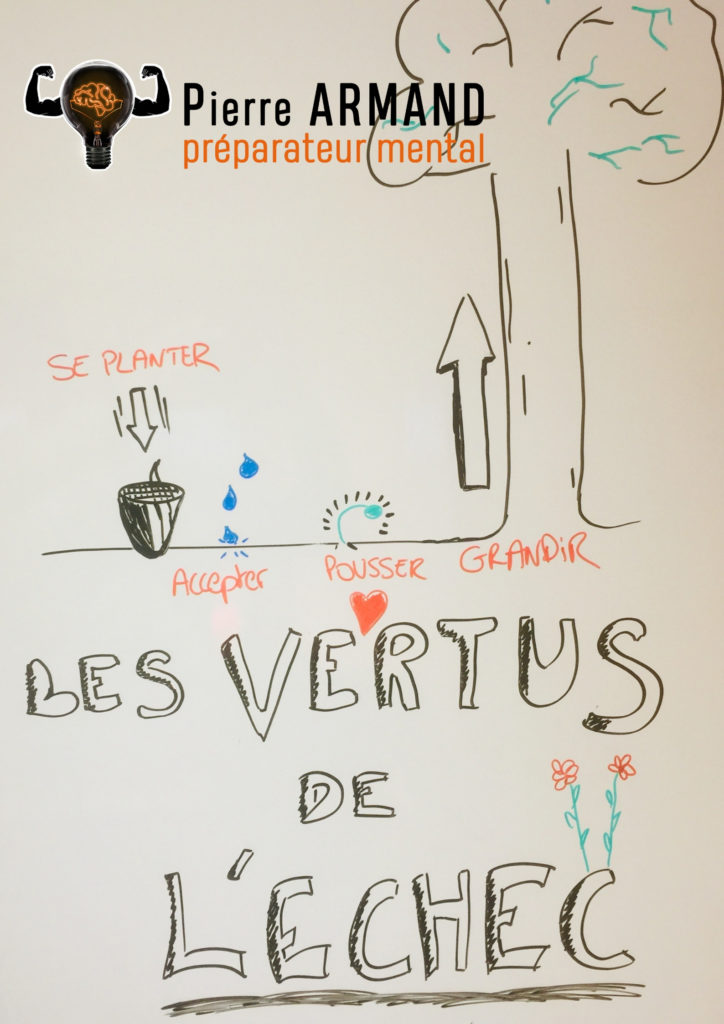 Pierre ARMAND
préparateur mental
SE PLANTER
Accepter
POUSSER
GRANDIR
LES VERTUS
DE
L'ECHEC